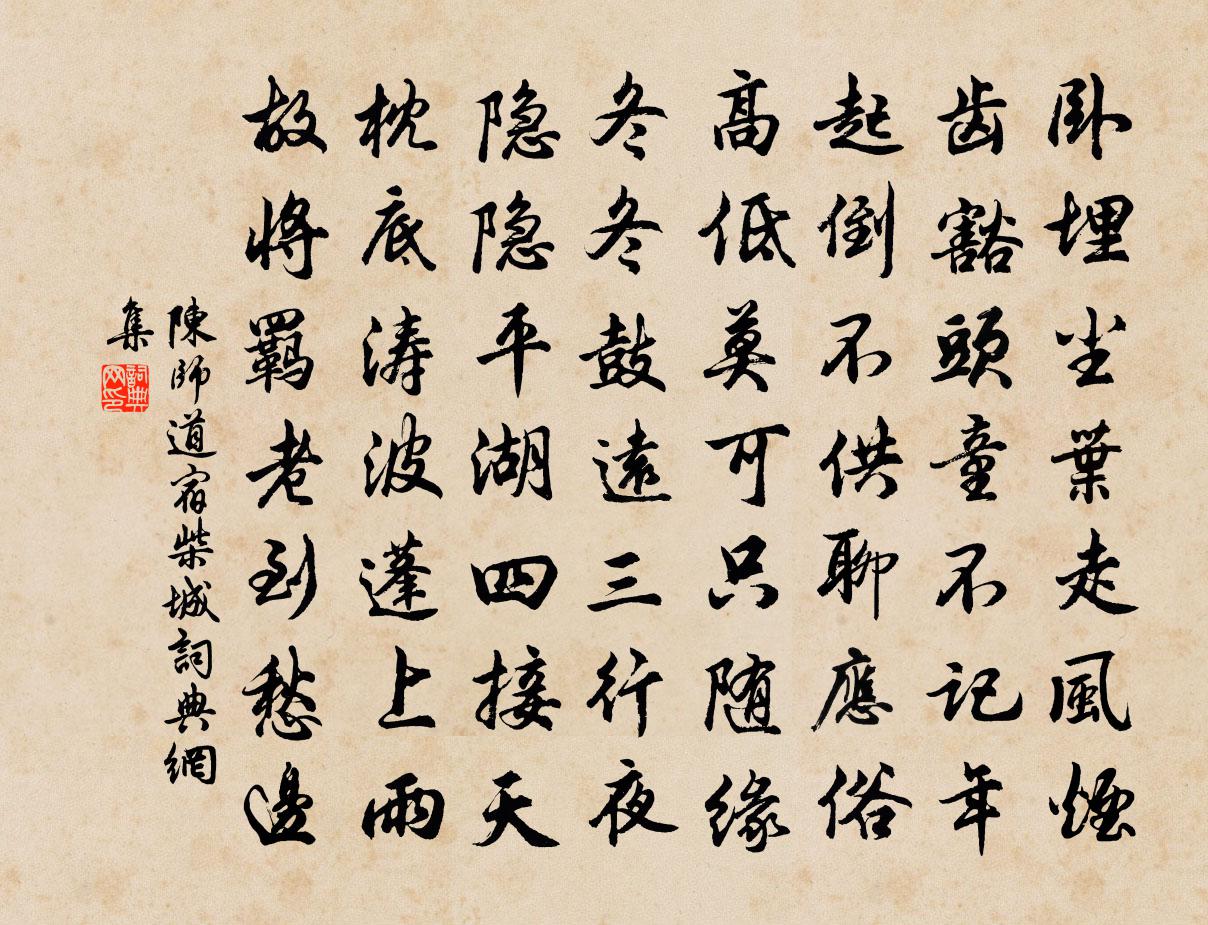 卧埋尘葉走風煙
齿豁頭童不记年
起倒不供聊應俗
高低莫可只随缘
冬冬鼓遠三行夜
隐隐平湖四接天
枕底涛波蓬上雨
故将羁老到愁邊
陳師道宿柴城詞典網
集
詞典
网印